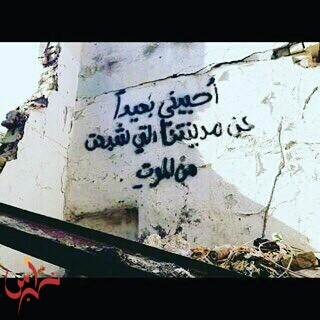 أحبيني بعيداً
عن مدينتنا التي شبعت
من الموت